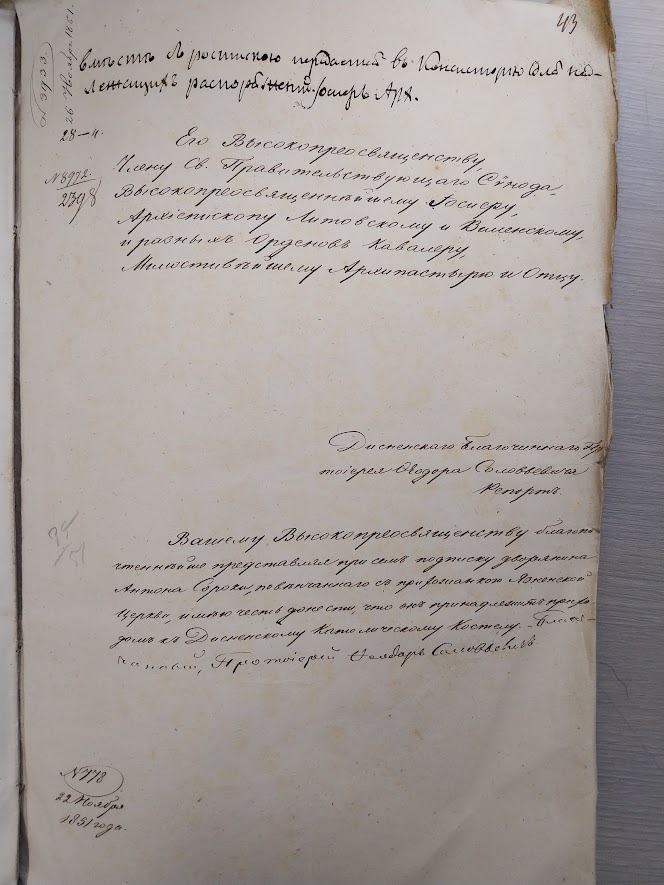 43
№ 3933
26 Ноября 1851.
вмѣстѣ съ роспискою передается въ Консисторію для над-
лежащихъ распоряженій. Іосифъ Арх.
28–4.
№ 8972.
2398
Его Высокопреосвященству,
Члену Св. Правительствующаго Сѵнода,
Высокопреосвященнѣйшему Іосифу,
Архіепископу Литовскому и Виленскому,
и разныхъ Орденовъ Кавалеру,
Милостивѣйшему Архипастырю и Отцу.
Дисненскаго Благочиннаго Про
тоіерея Ѳеодора Соловьевича
Репортъ.
Вашему Высокопреосвященству благопо
чтеннѣйше представляя при семъ подписку дворянина
Антона Сороки, повѣнчаннаго съ прихожанкою Язненской
Церкви, имѣю честь донести, что онъ принадлежитъ прихо
домъ къ Дисненскому Католическому Костелу. – Благо-
чинный, Протоіерей Ѳеодоръ Соловьевичъ
№ 778
22 Ноября
1851 года.